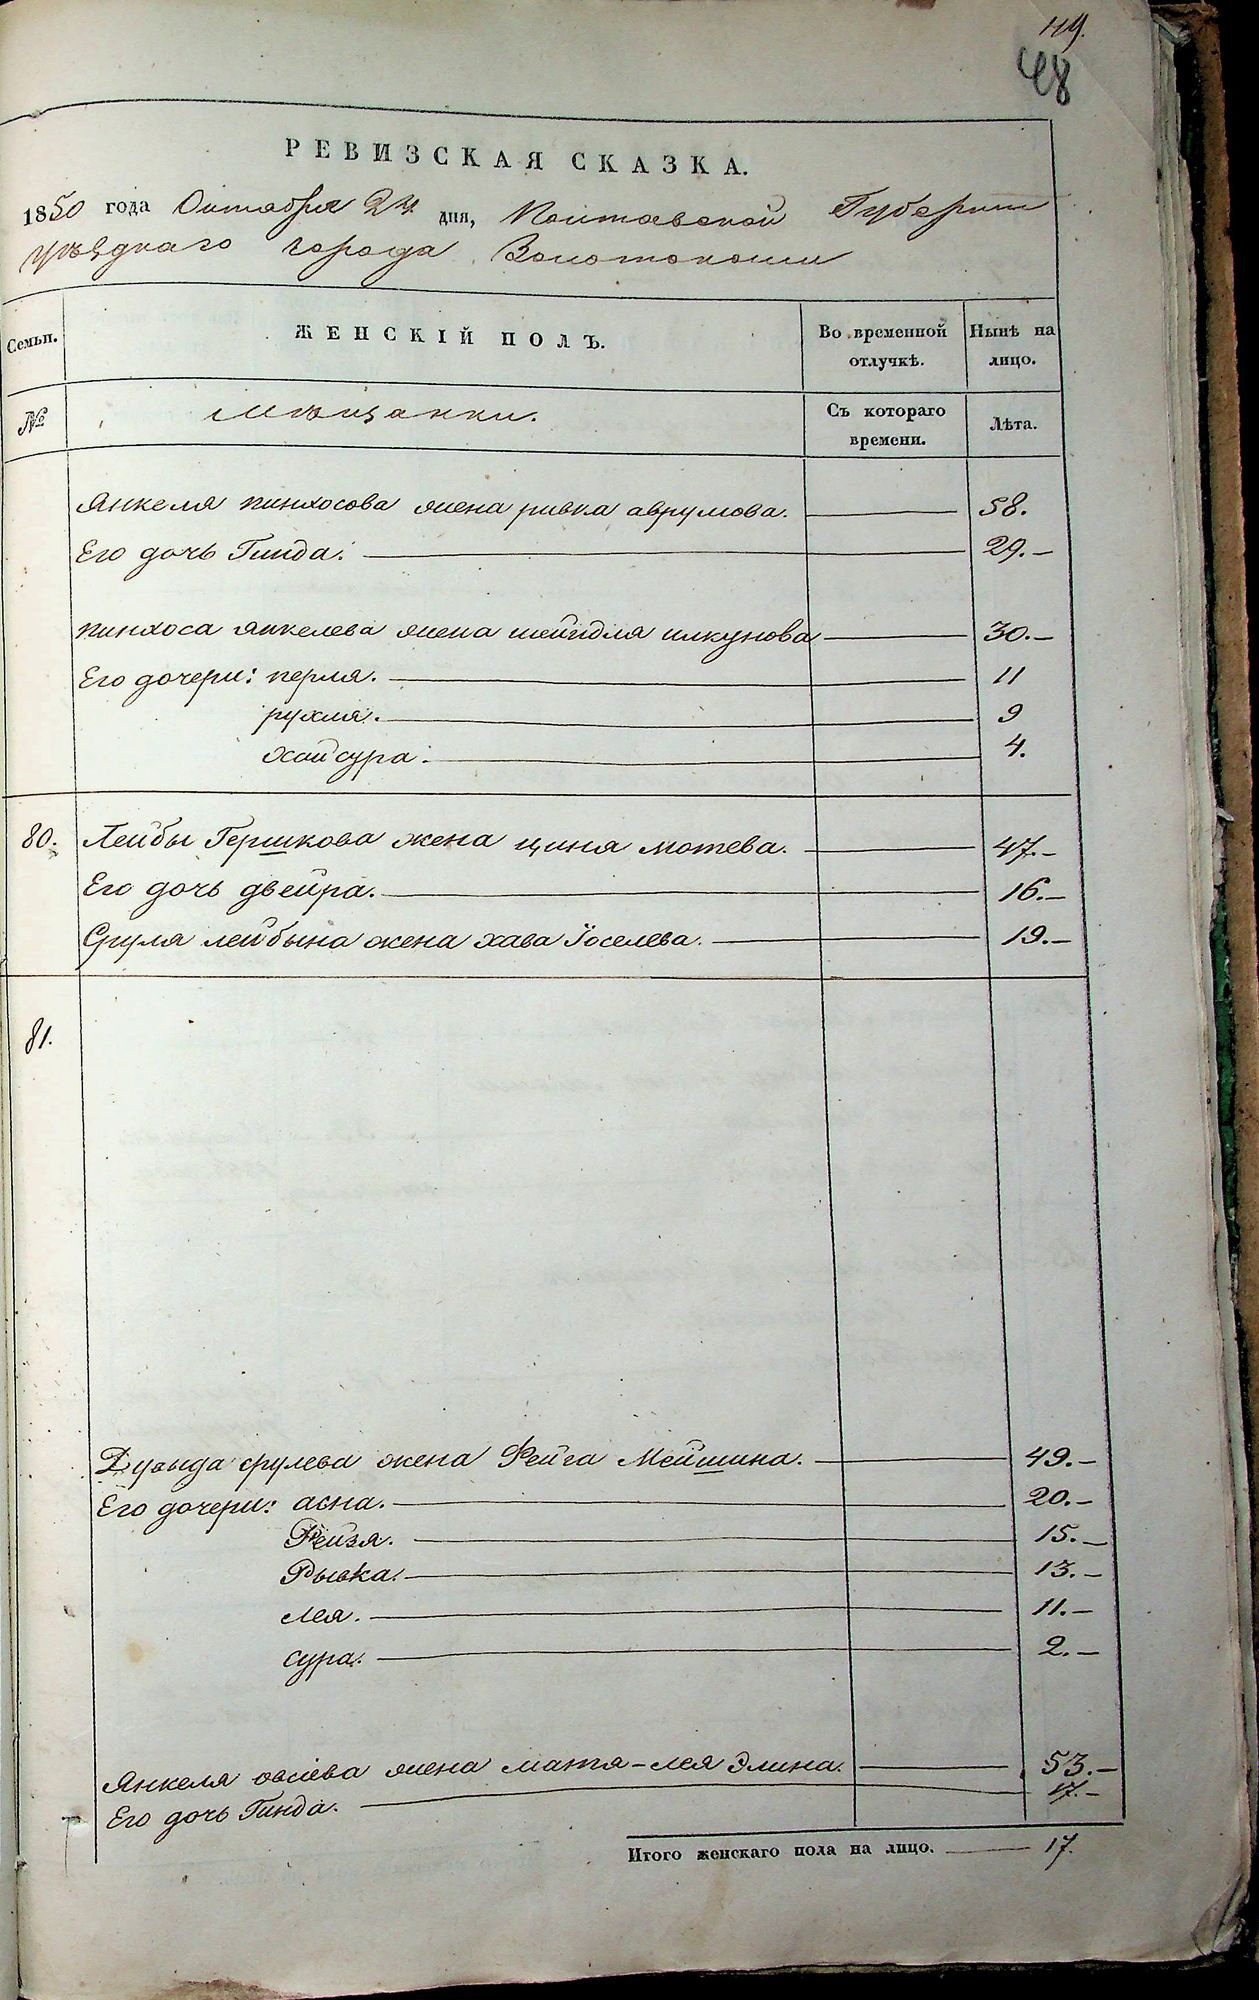 119.
48
РЕВИЗСКАЯ СКАЗКА.
1850 года Октября 24 дня, Полтавской Губернии
уѣзднаго города Золотоноши
Семьи. ЖЕНСКІЙ ПОЛЪ. Во временной отлучкѣ. Нынѣ на лицо.
№ Мѣщанки. Съ котораго времени. Лѣта.
Янкеля пинхосова жена ривка аврумова. 58.
Его дочь Гинда. 29.
пинхоса янкелева жена шейндля илкунова 30.
Его дочери: перля. 11
рухля. 9
хайсура. 4.
80. Лейбы Гершкова жена циня мотева. 47.
Его дочь двейра. 16.
Сруля лейбына жена хава Іоселева. 19.
81.
Дувыда срулева жена Фейга Мейшина. 49.
Его дочери: асна. 20.
Рейзя. 15.
Рывка. 13.
лея. 11.
сура. 2.
Янкеля овсіева жена матя-лея Элина. 53.
Его дочь Гинда. 17.
Итого женскаго пола на лицо. 17.